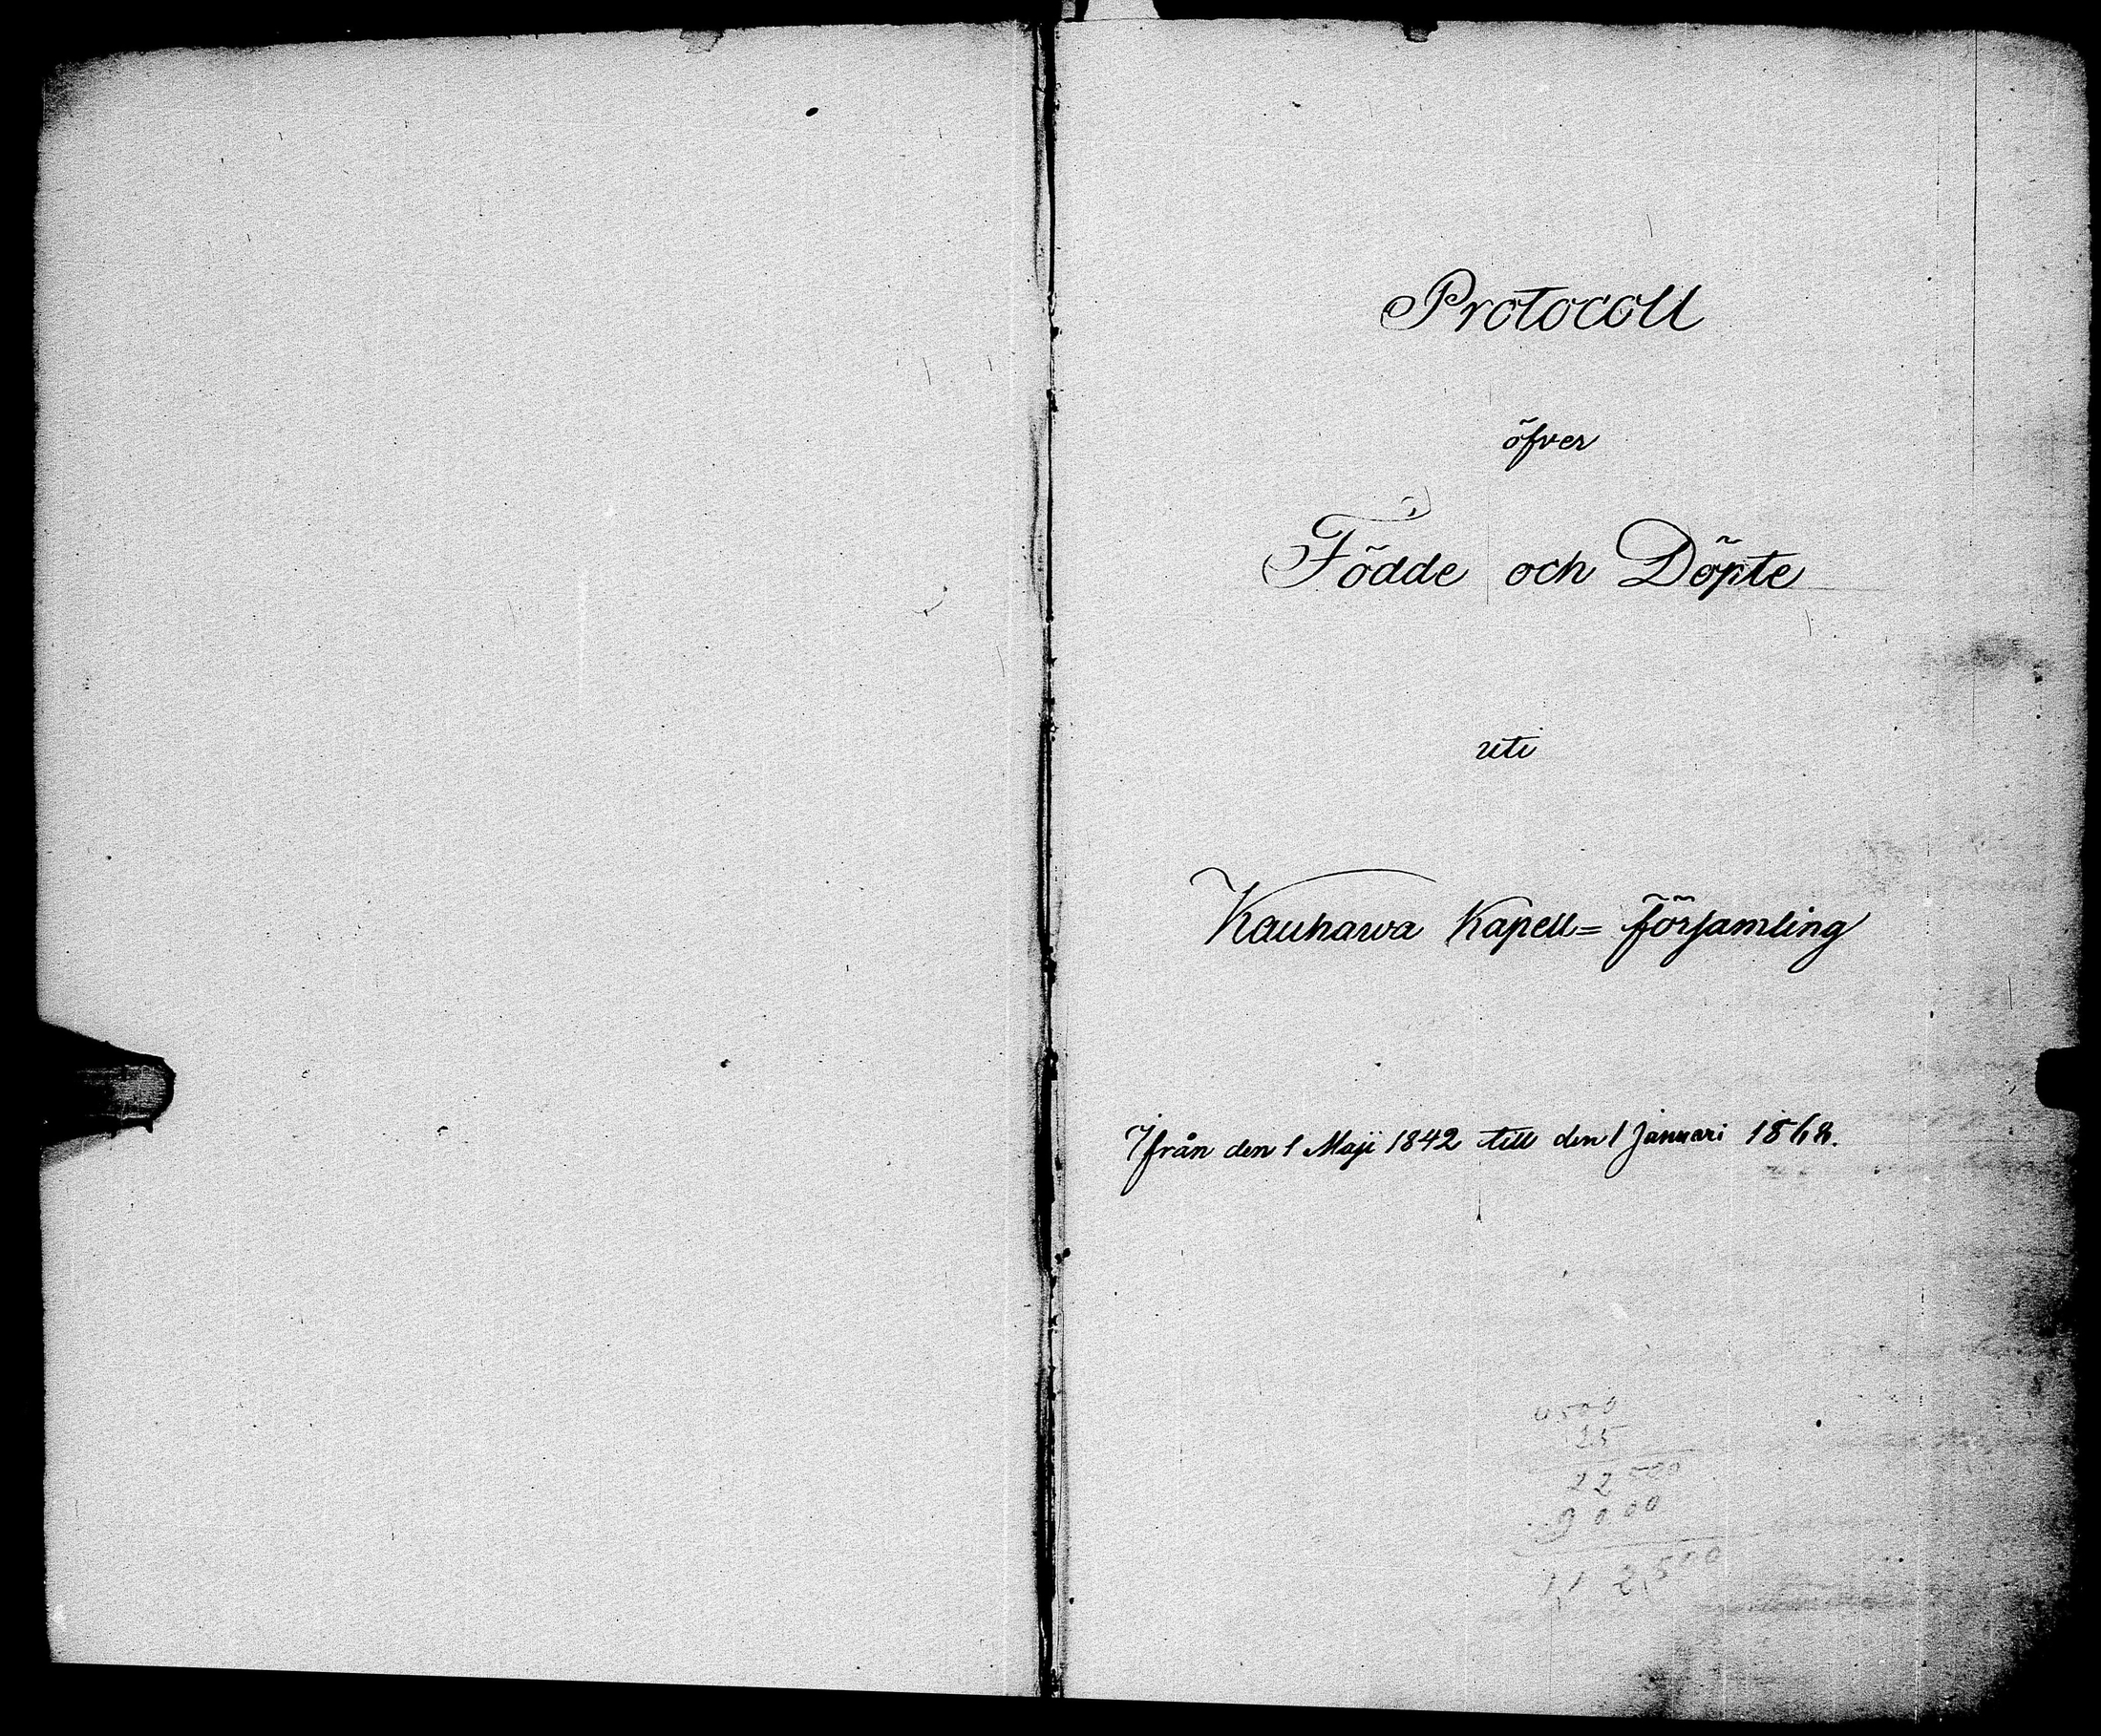 Protocoll
öfver
Födde och Döpte
uti
Kauhawa Kapell= församling
Ifrån den 1 Maji 1842 till den 1 Januari 1868.
4500
25
22500
9000
112500